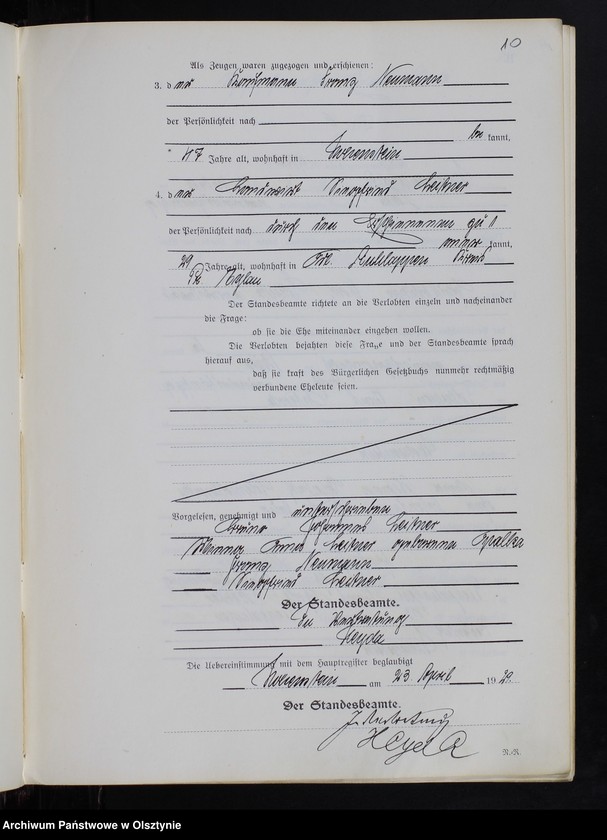 10
Als Zeugen waren zugezogen und erschienen:
3. der Kaufmann Franz Neumann
der Persönlichkeit nach
bekannt,
47 Jahre alt, wohnhaft in Hohenstein
4. der Landwirt Siegfried Leitner
der Persönlichkeit nach durch den
kannt,
29 Jahre alt, wohnhaft in
Der Standesbeamte richtete an die Verlobten einzeln und nacheinander
die Frage:
ob sie die Ehe miteinander eingehen wollen.
Die Verlobten bejahten diese Frage und der Standesbeamte sprach
hierauf aus,
daß sie kraft des Bürgerlichen Gesetzbuchs nunmehr rechtmäßig
verbundene Eheleute seien.
Vorgelesen, genehmigt und unterschrieben
Bruno Johannes Leitner
Minna Leitner geborene
Franz Neumann
Siegfried Leitner
Der Standesbeamte.
In Vertretung
Heyda
Die Uebereinstimmung mit dem Hauptregister beglaubigt
Hohenstein am 23 April 1929.
Der Standesbeamte.
In Vertretung
Heyda
R./R.
Archiwum Państwowe w Olsztynie